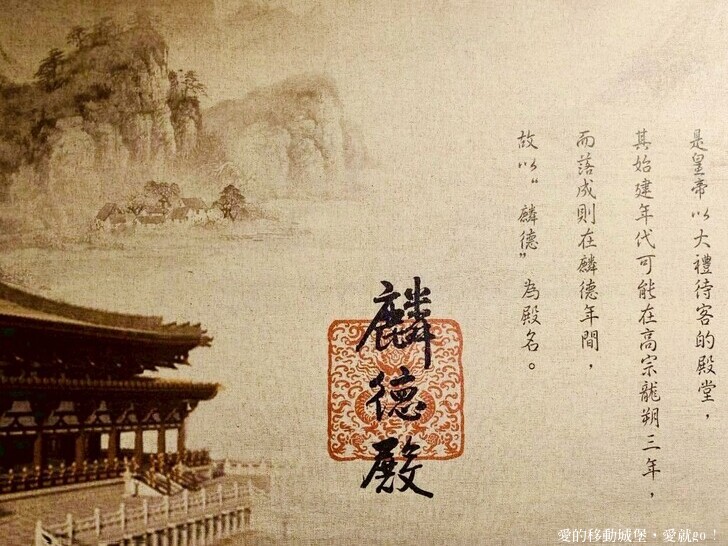 是皇帝以大禮待客的殿堂，
其始建年代可能在高宗龍朔三年，
而落成則在麟德年間，
故以“麟德”為殿名。
麟德殿
愛的移動城堡，愛就go！